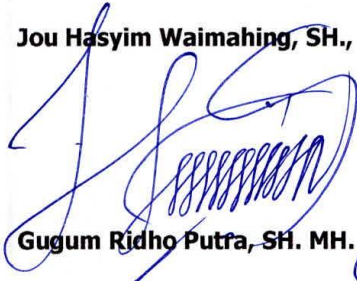 Jou Hasyim Waimahing, SH.,
Gugum Ridho Putra, SH. MH.